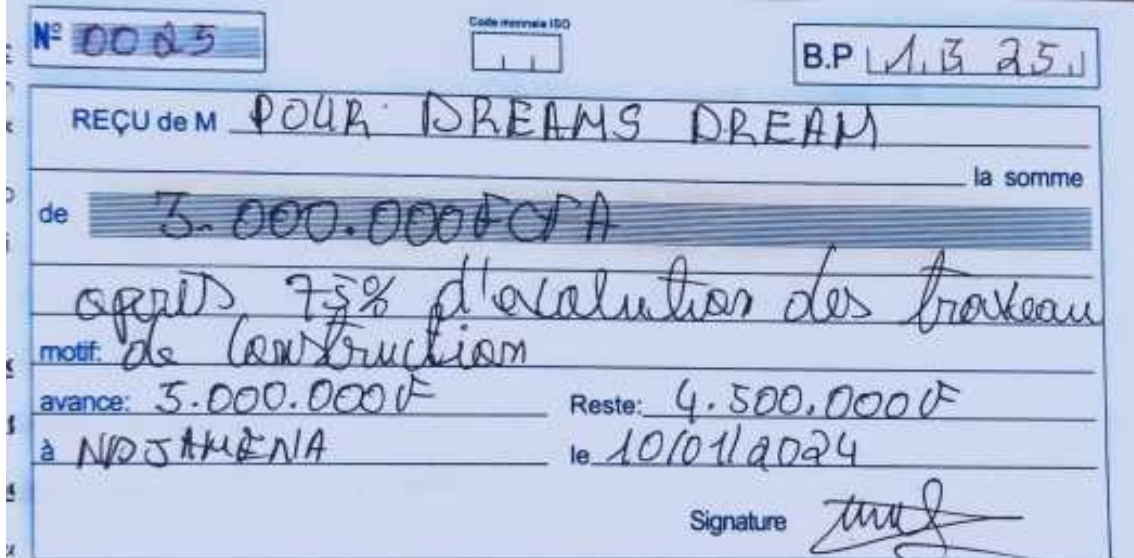 Nº 0025
Code monnaie ISO
B.P 1325
REÇU de M POUR DREAMS DREAM
la somme
de 3.000.000 FCFA
apprès 75% d'evalution des traveau
motif: de construction
avance: 3.000.000F Reste: 4.500.000F
à NDJAMENA le 10/01/2024
Signature